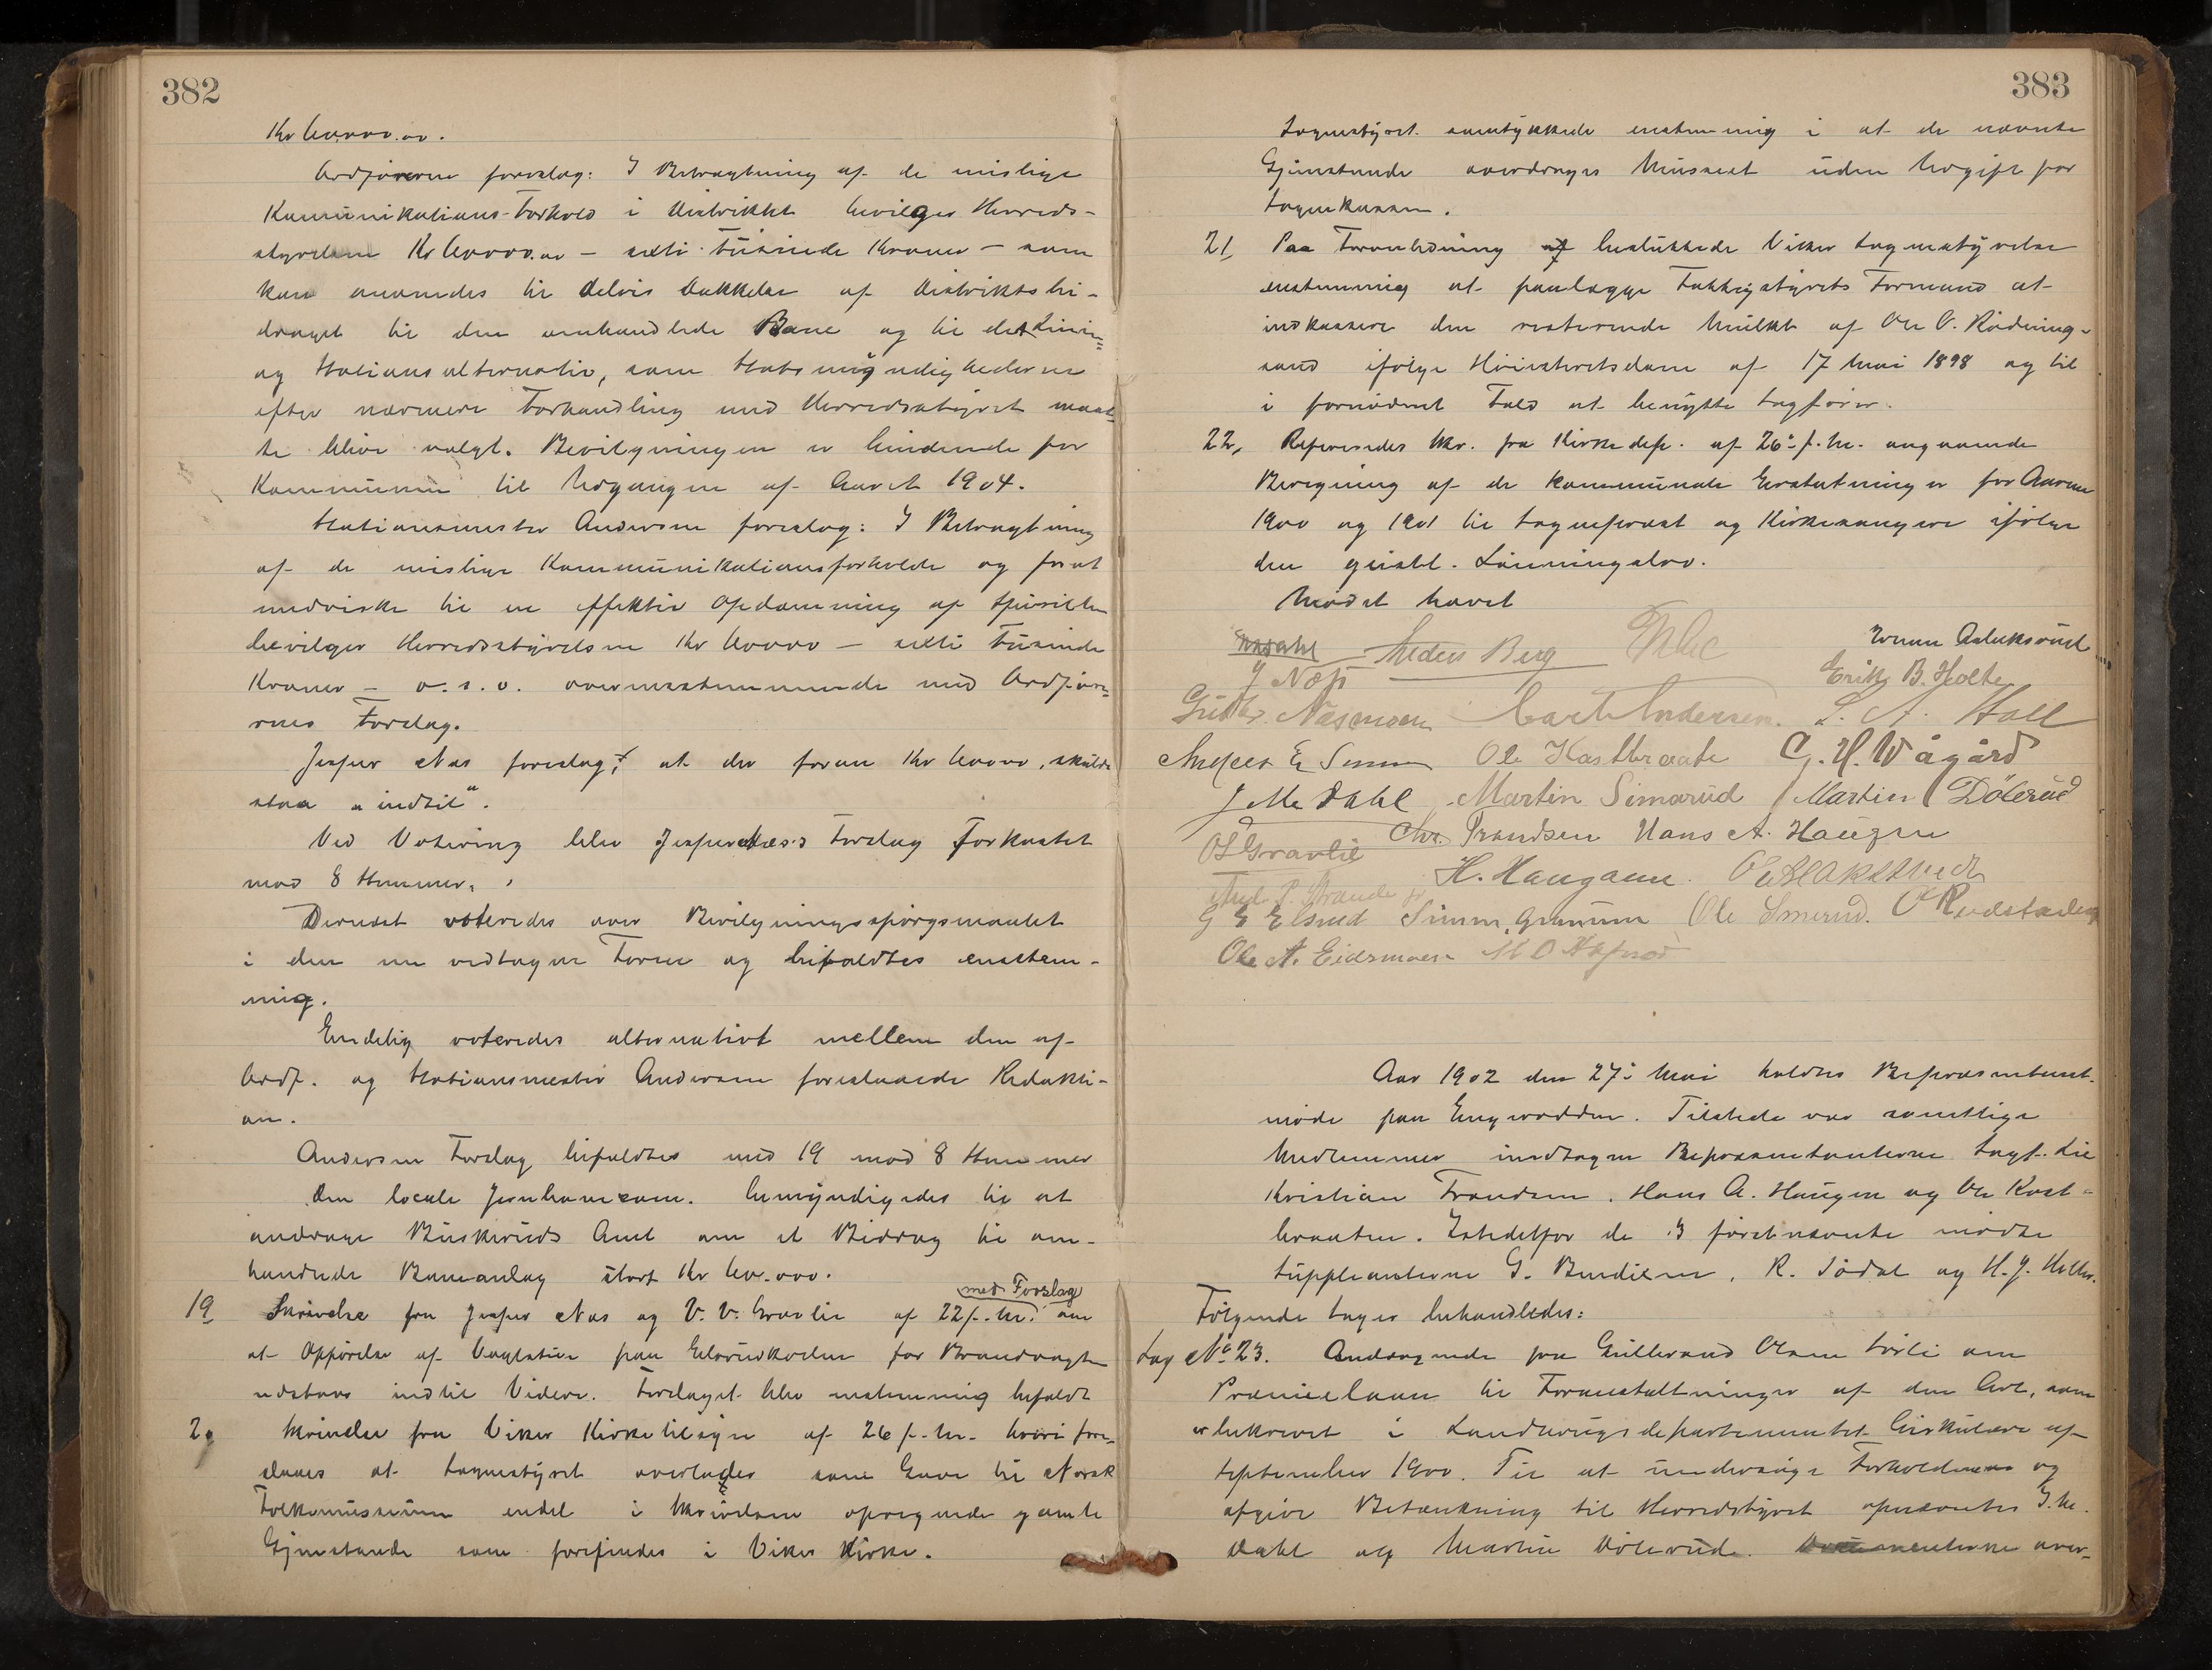 382
Kr 60000.00.
Ordføreren foreslog: I Betragtning af de mislige
Kommunikations-Forhold i Distriktet bevilger Herreds-
styrelsen Kr 60000.00 — seksti tusinde Kroner — som
kan anvendes til delvis Dækkelse af Distriktsbi-
draget til den omhandlede Bane og til det Linie-
og Stationsalternativ, som Statsmyndighederne
efter nærmere Forhandling med Herredsstyret maat-
te blive valgt. Bevilgningen er bindende for
Kommunen til Udgangen af Aaret 1904.
Stationsmester Andersen foreslog: I Betragtning
af de mislige Kommunikationsforholde og for at
medvirke til en effektiv Opdæmning af Spirillen
bevilger Herredsstyrelsen Kr 60000 — seksti tusinde
Kroner — o.s.v. overensstemmende med Ordføre-
rens Forslag.
Jesper Næs foreslog, at der foran Kr 60000, skulde
staa "indtil".
Ved Votering blev Jesper Næs's Forslag forkastet
mod 8 Stemmer.
Dernæst voteredes over Bevilgningsspørgsmaalet
i den nu vedtagne Form og bifaldtes enstem-
mig.
Endelig voteredes alternativt mellem den af
Ordf. og Stationsmester Andersen foreslaaede Redakti-
on.
Andersens Forslag bifaldtes med 19 mod 8 Stemmer
Den locale Jernbanecom. bemyndigedes til at
andrage Buskeruds Amt om et Bidrag til om-
handlede Baneanlæg stort Kr 60.000.
med Forslag
19 Skrivelse fra Jesper Næs og V. V. Gravlie af 22 f. M. om
at Opførelse af Vagtstue paa Elsrudkollen for Brandvagten
udstaar indtil Videre. Forslaget blev enstemmig bifaldt
20 Skrivelse fra Viker Kirketilsyn af 26 f. M. hvori fore-
slaaes at Sognestyret overlader som Gave til Norsk
Folkemuseum endel i Skrivelsen opregnede gamle
Gjenstande som forefindes i Viker Kirke.
383
Sognestyret samtykkede enstemmig i at de nævnte
Gjenstande overdrages Museet uden Udgift for
Sognekassen.
21, Paa Foranledning af besluttede Viker Sognestyrelse
enstemmig at paalægge Fattigstyrets Formand at
indkassere den resterende Mulkt af Ole O. Rødning-
sand ifølge Høiesteretsdom af 17 Mai 1898 og til
i fornødent Fald at benytte Sagfører.
22, Refereredes Skr. fra Kirkedep. af 26de f. M. angaaende
Beregning af de kommunale Erstatninger for Aarene
1900 og 1901 til Sogneprest og Kirkesangere ifølge
den geistl. Lønningslov.
Mødet hævet
Anders Berg
J Næs
Erik B. Holte
Gulbr. Næsmoen Carl Andersen. L. A. Hall
Anders E Simen Ole Kastbraate G. H. Wågård
J M Dahl Martin Simarud Martin Dølerud
O S Gravlie Chr. Frandsen Hans A. Haugen
H. Haugann.
G E Elsrud Simen Grimum Ole Smerud.
Ole A. Eidsmoen
Aar 1902 den 27de Mai holdtes Repræsentant-
møde paa Engerodden. Tilstede var samtlige
Medlemmer undtagen Repræsentanterne Sagf. Lie
Kristian Frandsen, Hans A. Haugen og Ole Kast-
braaten. Istedetfor de 3 førstnævnte mødte
Suppleanterne G. Bendiksen, R. Sødal og H. J. Holte.
Følgende Sager behandledes:
Sag No 23. Andragende fra Gulbrand Olsen Sørli om
Præmielaan til Foranstaltninger af den Art, som
er beskrevet i Landbrugsdepartementets Cirkulære af
September 1900. Til at undersøge Forholdene og
afgive Betænkning til Herredstyret opnævntes J. M.
Dahl og Martin Dølerud. Dokumenterne over-